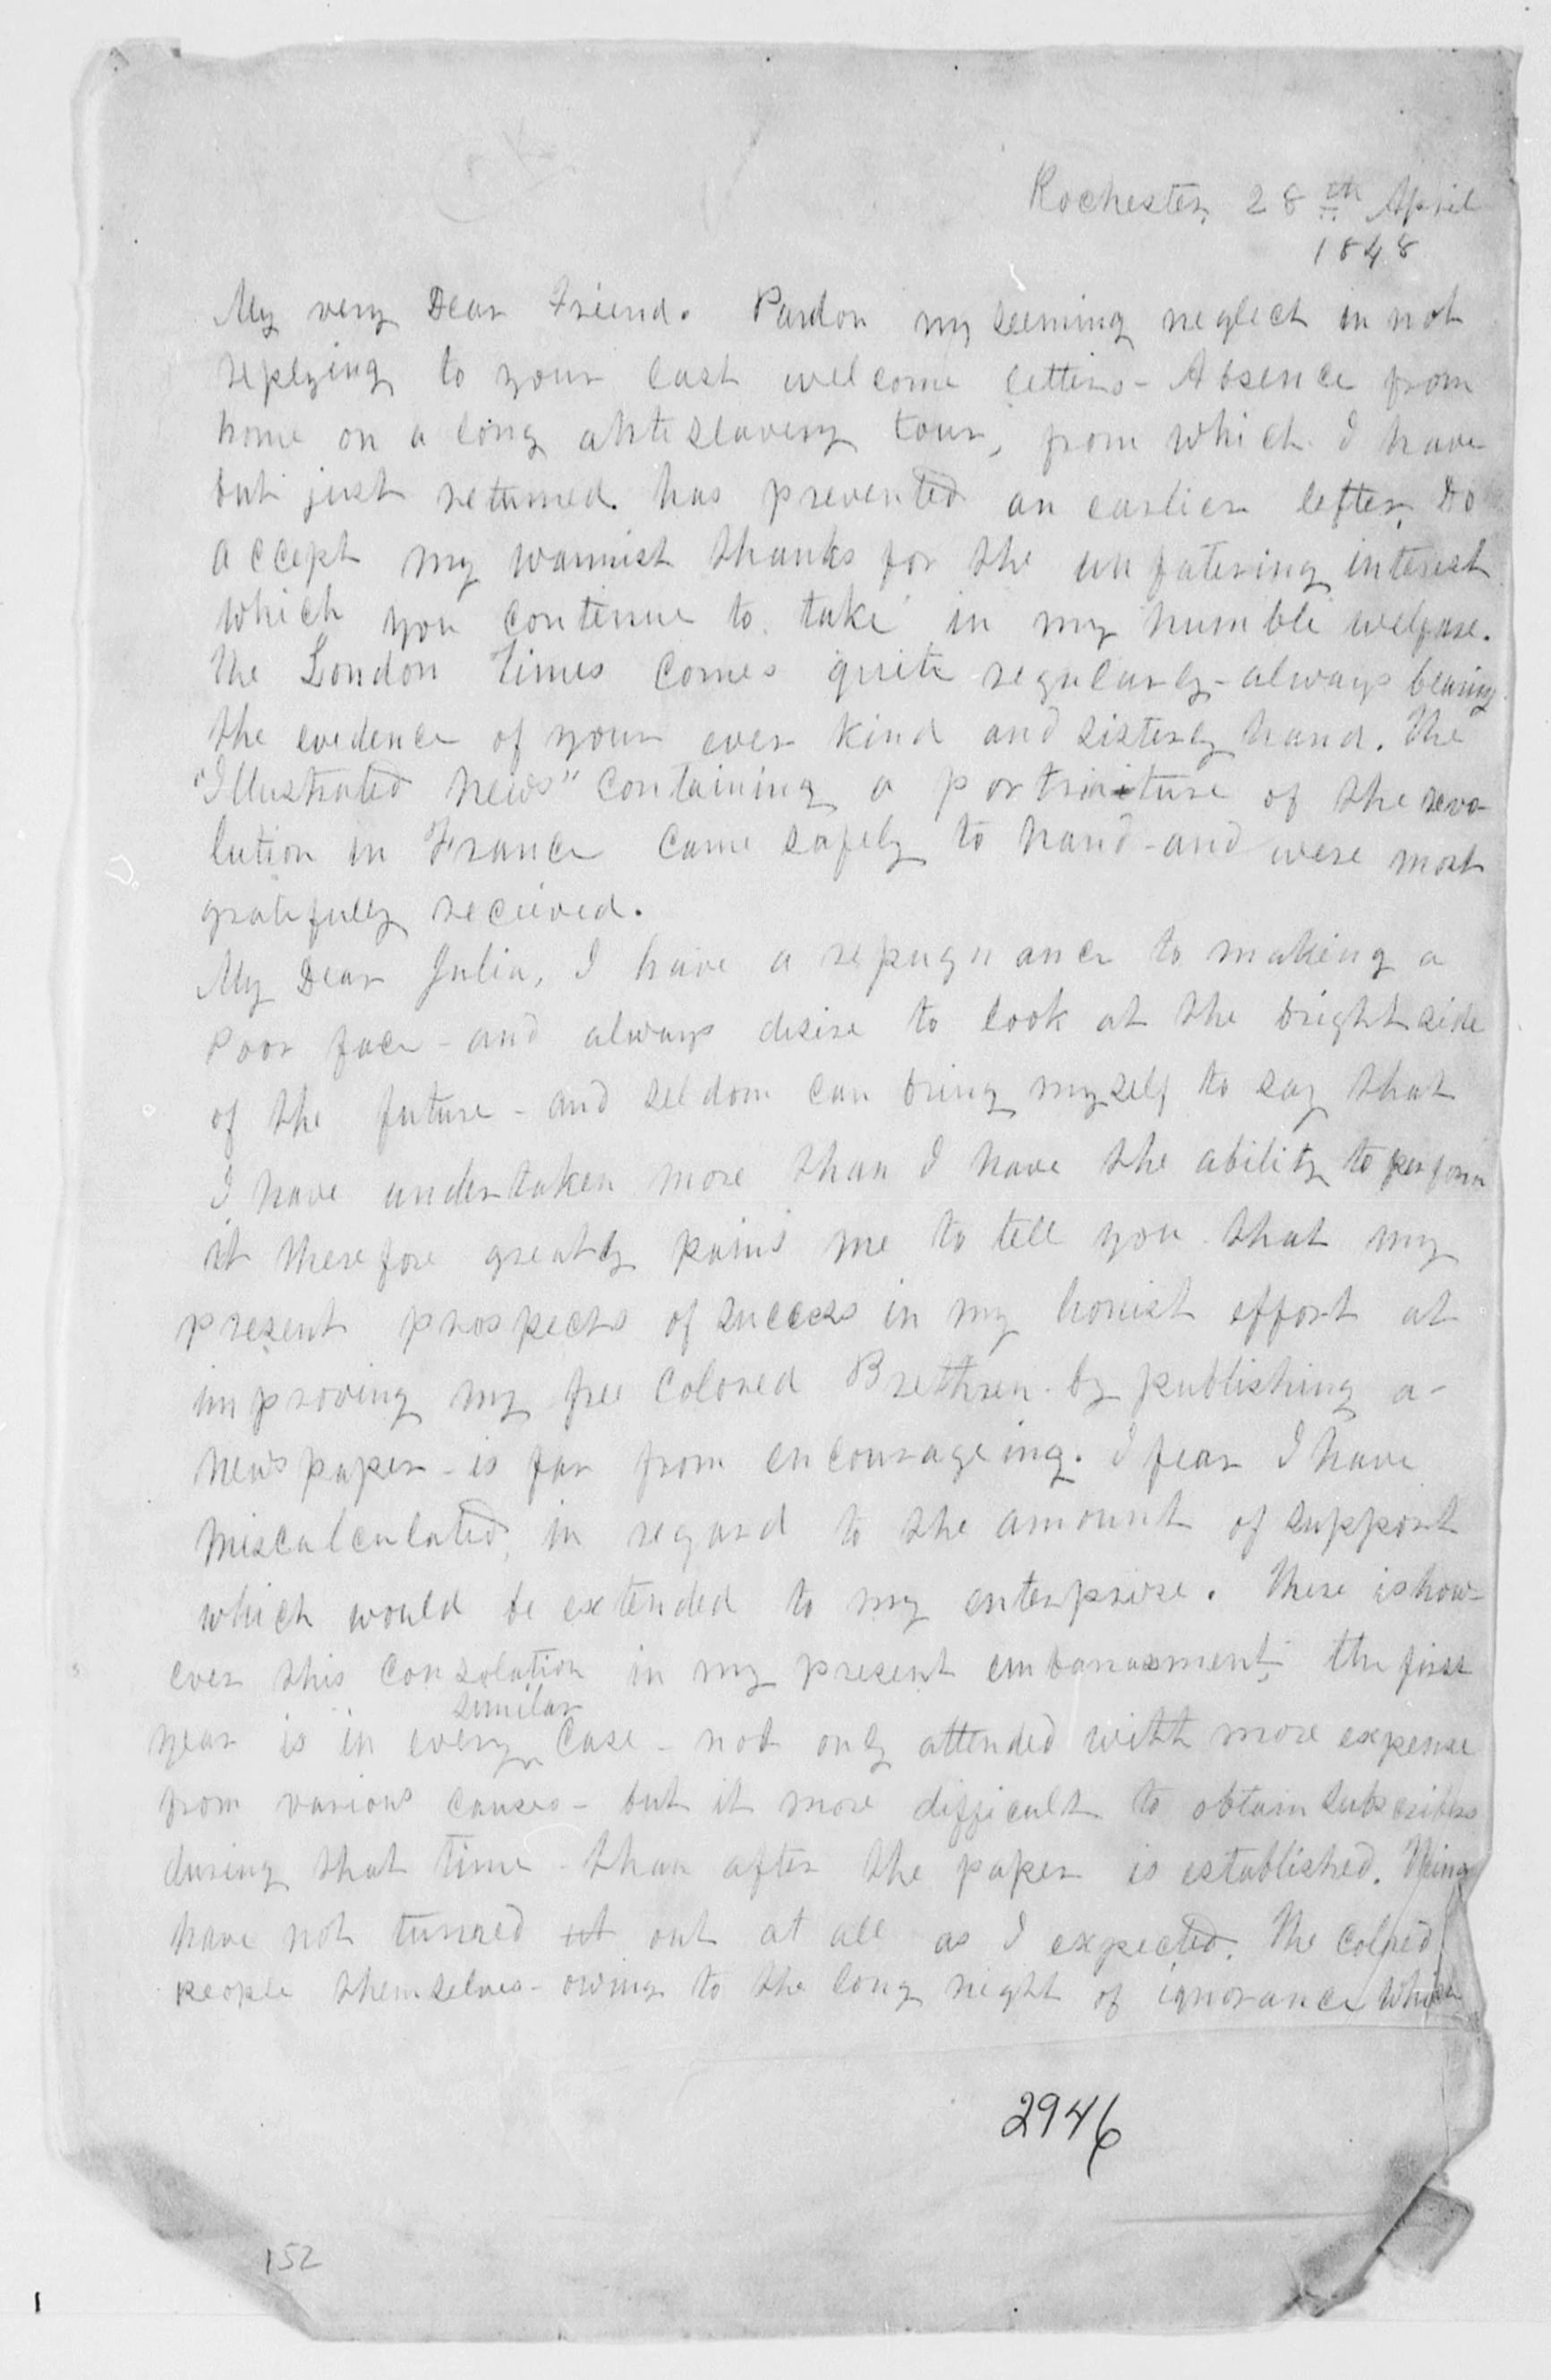 Rochester, 28th April
1848
My very Dear Friend. Pardon my seeming neglect in not
replying to your last welcome letters - Absence from
home on a long antislavery tour, from which I have
but just returned. has prevented an earlier letter. Do
accept my warmist thanks for the unfatering interest
which you continue to take in my humble welfare.
The London Times comes quite regularly - always bearing
the evidence of your ever kind and sisterly hand. The
"Illustrated News" containing a portraiture of the revo-
lution in France came safely to hand - and were most
gratefully recieved.
My Dear Julia, I have a repugnance to making a
poor face - and always desire to look at the bright side
of the future - and seldom can bring myself to say that
I have undertaken more than I have the ability to perform
it therefore greatly pains me to tell you that my
present prospects of success in my honist effort at
improving my free colored Brethren - by publishing a-
newspaper - is far from encourageing. I fear I have
miscalculated, in regard to the amount of support
which would be extended to my enterprise. There is how-
ever this consolation in my present embarrasment - the first
similar
year is in every case - not only attended with more expense
from various causes - but it more difficult to obtain subscribers
during that time - than after the paper is established. Things
have not turned it out at all as I expected. The colored
people themselves - owing to the long night of ignorance which
2946
152
1